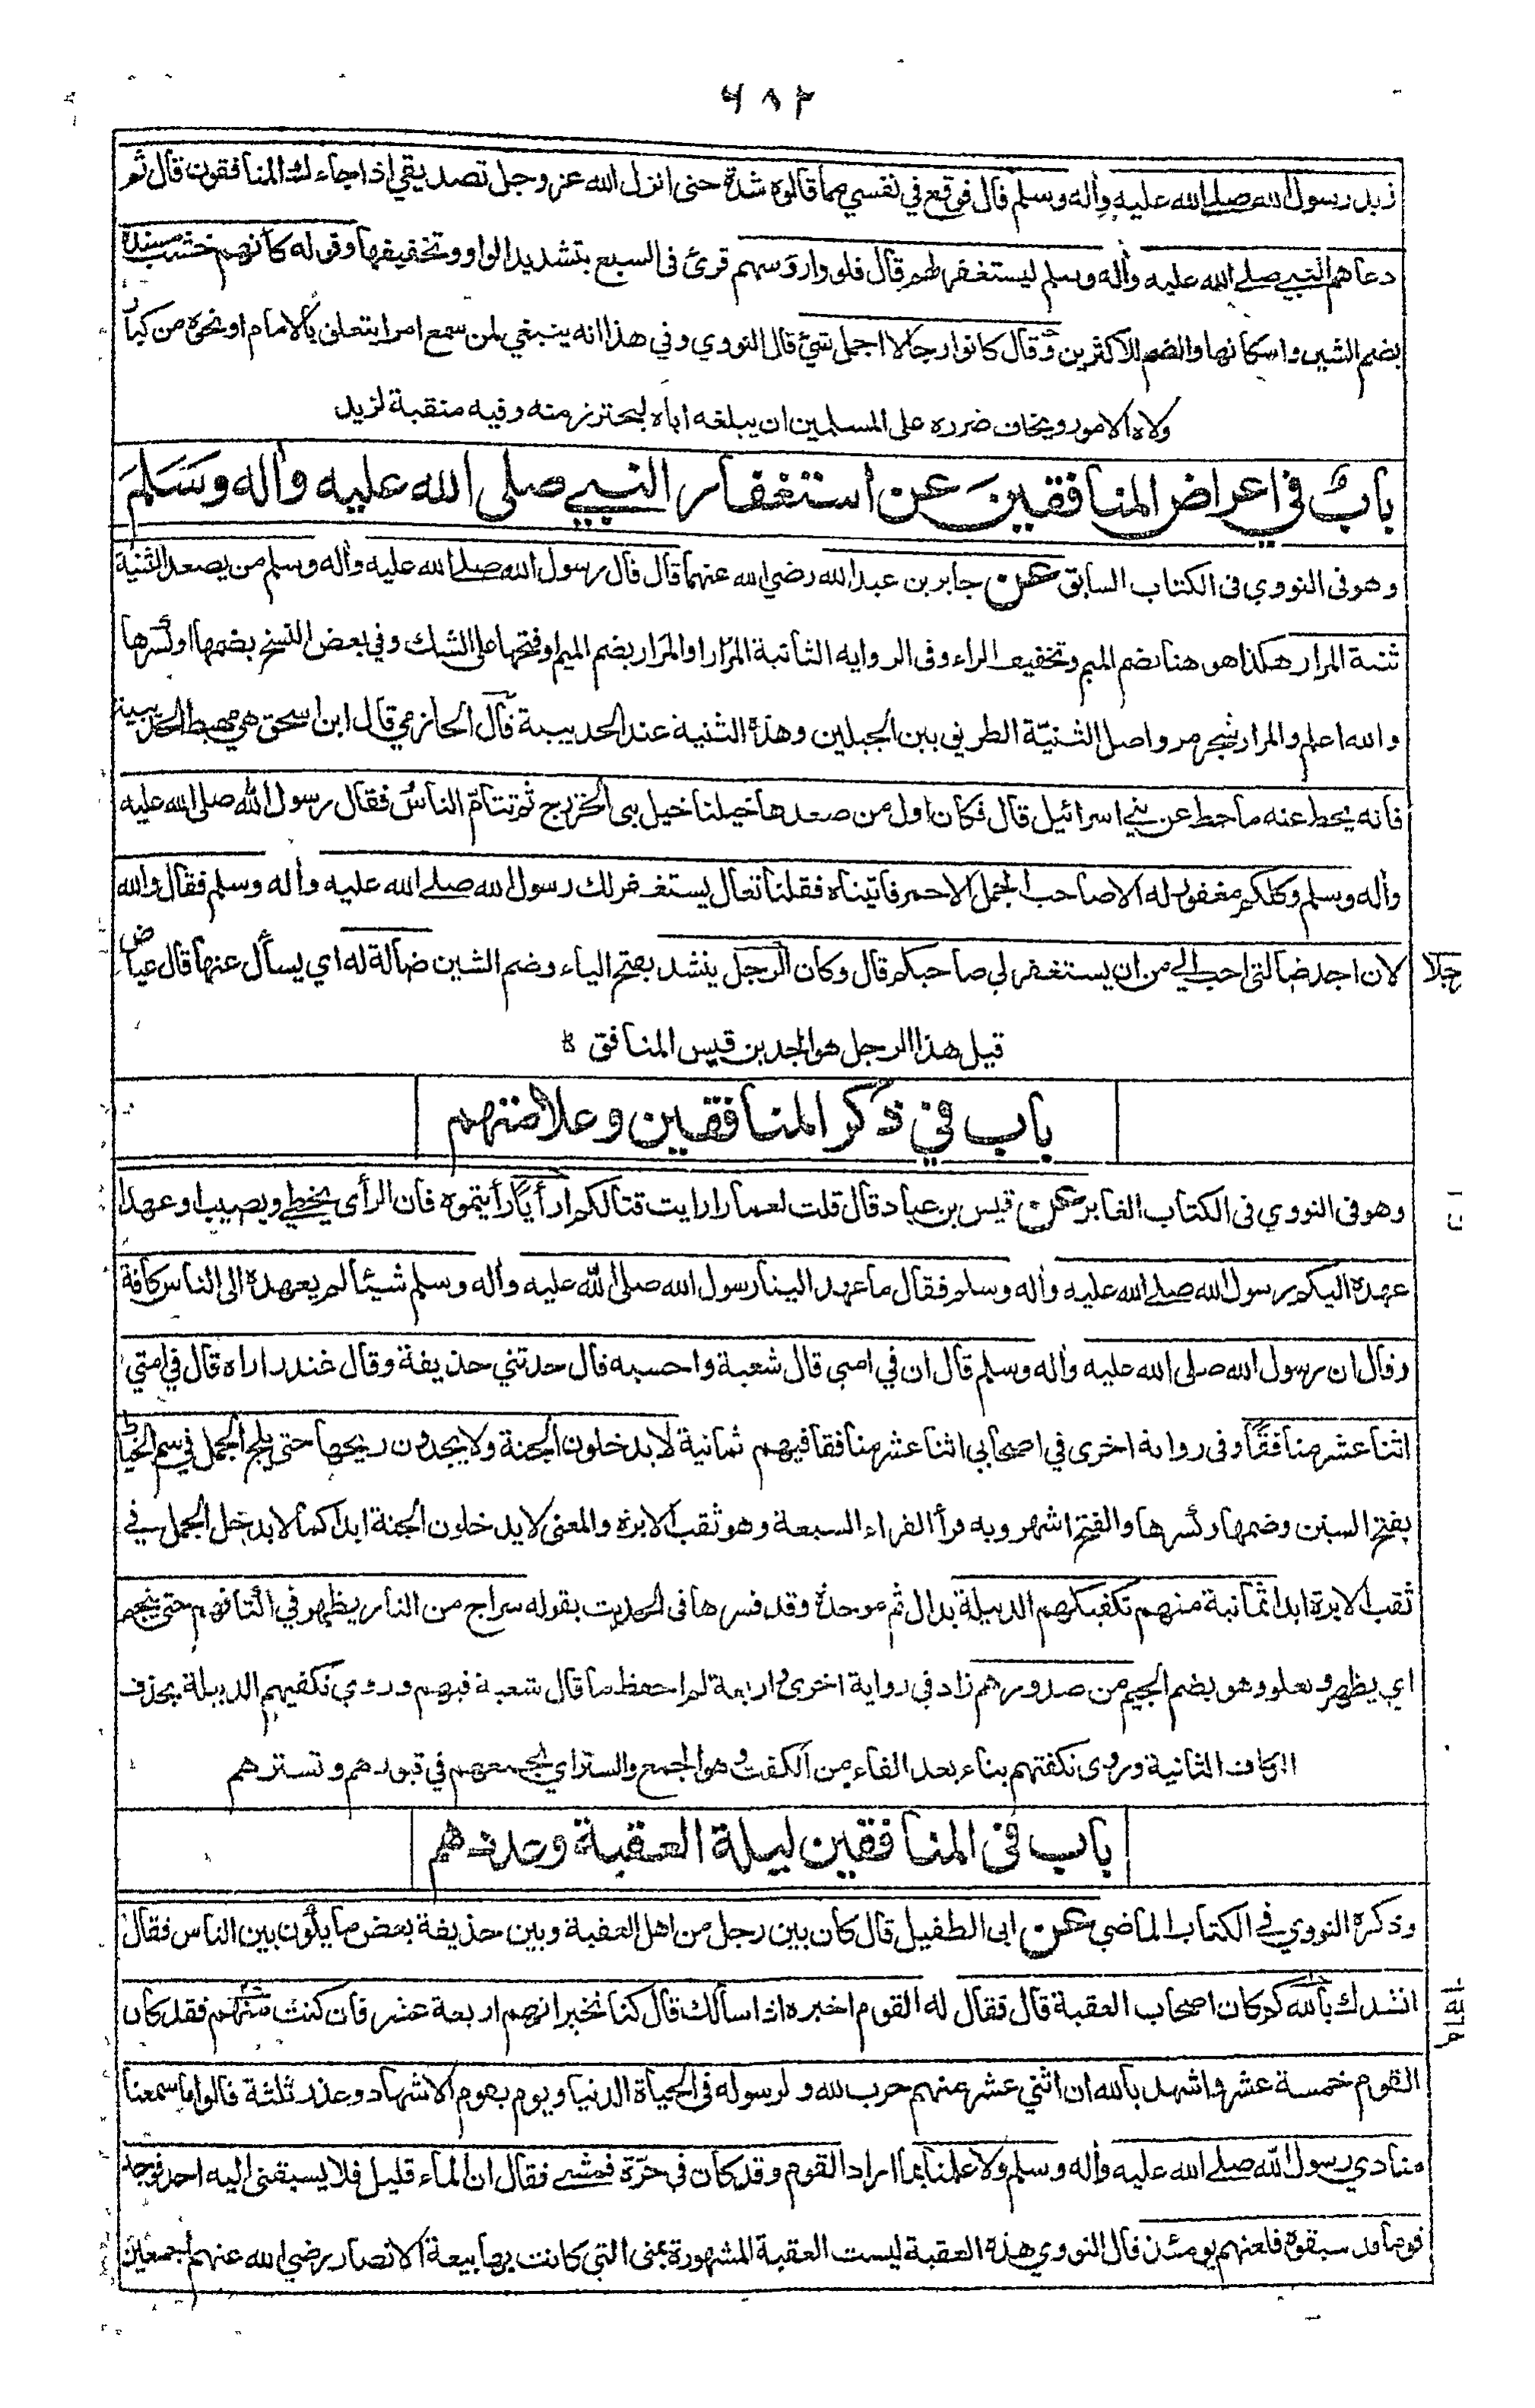 ٦٨٢
زيد رسول الله صلى الله عليه وأله وسلم قال فوقع في نفسي مما قالوه شدة حتى انزل الله عز وجل تصديقي اذا جاءك المنافقون قال ثم
دعاهم النبي صلى الله عليه وأله وسلم ليستغفر لهم قال فلووا رؤسهم قرئ فى السبع بتشديد الواو وتخفيفها وقوله كأنهم خشب مسندة
بضم الشين واسكانها والضم للاكثرين وقال كانوا رجالا اجمل شئ قال النووي وفي هذا انه ينبغي لمن سمع امرا يتعلق بالامام او نحوه من كبار
ولاة الامور ويخاف ضرره على المسلمين ان يبلغه اياه ليحترز منه وفيه منقبة لزيد
باب في اعراض المنافقين عن استغفار النبي صلى الله عليه وأله وسلم
وهو فى النووي فى الكتاب السابق عن جابر بن عبد الله رضي الله عنهما قال قال رسول الله صلى الله عليه وأله وسلم من يصعد الثنية
ثنية المرار هكذا هو هنا بضم الميم وتخفيف الراء وفى الرواية الثانية المرار او المرار بضم الميم او فتحها على الشك وفي بعض النسخ بضمها او كسرها
والله اعلم والمرار شجر مر واصل الثنيّة الطريق بين الجبلين وهذه الثنية عند الحديبية قال الحازمي قال ابن اسحق هي مهبط الحديبية
فانه يحط عنه ما حط عن بني اسرائيل قال فكان اول من صعدها خيلنا خيل بنى الخزرج ثم تتامّ الناس فقال رسول الله صلى الله عليه
وأله وسلم وكلكم مغفور له الا صاحب الجمل الاحمر فاتيناه فقلنا تعال يستغفر لك رسول الله صلى الله عليه وأله وسلم فقال والله
لان اجد ضالتى احب الي من ان يستغفر لي صاحبكم قال وكان الرجل ينشد بفتح الياء وضم الشين ضالة له اي يسأل عنها قال عياض
رجلا
قيل هذا الرجل هو الجد بن قيس المنافق
باب في ذكر المنافقين وعلامتهم
وهو فى النووي فى الكتاب الغابر عن قيس بن عباد قال قلت لعمار ارايت قتالكم ارأيًا رأيتموه فان الرأى يخطي ويصيب او عهدا
عهده اليكم رسول الله صلى الله عليه وأله وسلم فقال ما عهد الينا رسول الله صلى الله عليه وأله وسلم شيئا لم يعهده الى الناس كافة
وقال ان رسول الله صلى الله عليه وأله وسلم قال ان في امتي قال شعبة واحسبه قال حدثني حذيفة وقال غندر اراه قال في امتي
اثنا عشر منافقًا وفى رواية اخرى في اصحابي اثنا عشر منافقا فيهم ثمانية لا يدخلون الجنة ولا يجدون ريحها حتى يلج الجمل في سم الخياط
بفتح السين وضمها وكسرها والفتح اشهر وبه قرأ القراء السبعة وهو ثقب الابرة والمعنى لا يدخلون الجنة ابدا كما لا يدخل الجمل في
ثقب الابرة ابدا ثمانية منهم تكفيكهم الدبيلة بدال ثم موحدة وقد فسرها فى الحديث بقوله سراج من النار يظهر في اكتافهم حتى ينجم
اي يظهر ويعلو وهو بضم الجيم من صدورهم زاد في رواية اخرى واربعة لم احفظ ما قال شعبة فيهم وروي تكفيهم الدبيلة بحذف
الكاف الثانية وروى تكفتهم بتاء بعد الفاء من الكفت وهو الجمع والستر اي تجمعهم في قبورهم وتسترهم
باب فى المنافقين ليلة العقبة وعددهم
وذكره النووي في الكتاب الماضي عن ابى الطفيل قال كان بين رجل من اهل العقبة وبين حذيفة بعض ما يكون بين الناس فقال
انشدك بالله كم كان اصحاب العقبة قال فقال له القوم اخبره اذ اسألك قال كنا نخبر انهم اربعة عشر فان كنت منهم فقد كان
القوم خمسة عشر واشهد بالله ان اثني عشر منهم حرب لله ولرسوله فى الحياة الدنيا ويوم يقوم الاشهاد وعذر ثلثة قالوا ما سمعنا
منادي رسول الله صلى الله عليه وأله وسلم ولا علمنا بما اراد القوم وقد كان فى حرّة فمشى فقال ان الماء قليل فلا يسبقنى اليه احد فوجد
قوما قد سبقوه فلعنهم يومئذ قال النووي هذه العقبة ليست العقبة المشهورة بمنى التي كانت بها بيعة الانصار رضي الله عنهم اجمعين